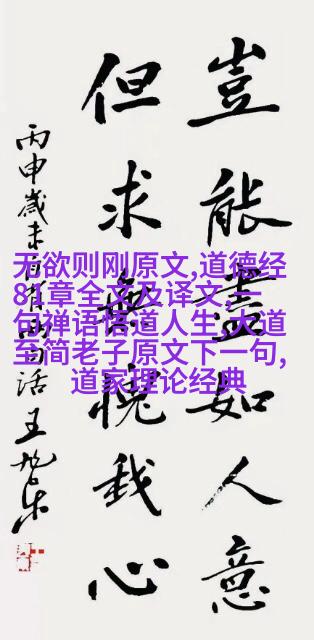 豈能盡如人意
但求無愧我心
丙申歲末
无欲则刚原文,道德经
81章全文及译文,一
句禅语悟道人生,大道
至简老子原文下一句,
道家理论经典